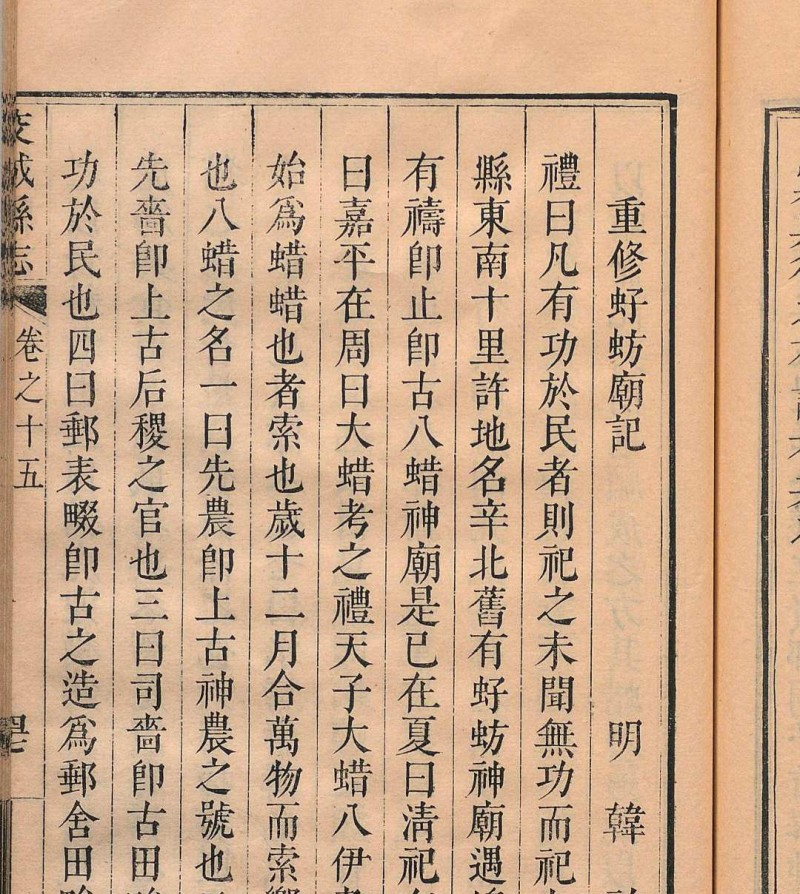 重修虸蚄廟記 明 韓
禮曰凡有功於民者則祀之未聞無功而祀
縣東南十里許地名辛北舊有虸蚄神廟遇
有禱卽止卽古八蜡神廟是已在夏曰淸祀
曰嘉平在周曰大蜡考之禮天子大蜡八伊
始爲蜡蜡也者索也歲十二月合萬物而索
也八蜡之名一曰先農卽上古神農之號也
先嗇卽上古后稷之官也三曰司嗇卽古田
功於民也四曰郵表畷卽古之造爲郵舍田
城縣志 卷之十五